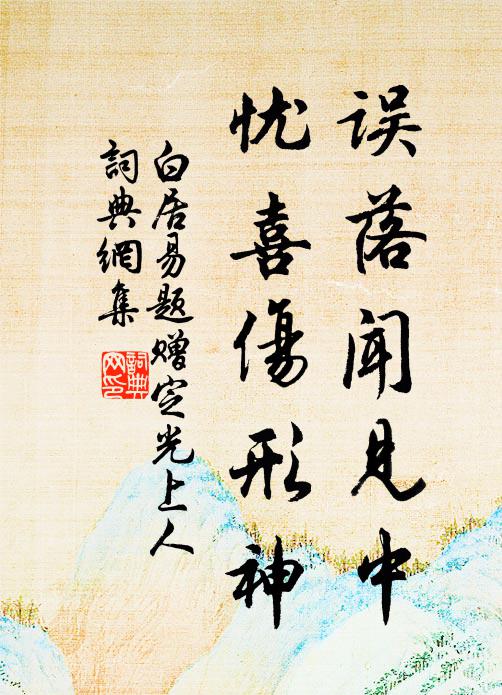 误落闻见中
忧喜傷形神
白居易题赠定光上人
詞典網集
詞典网印